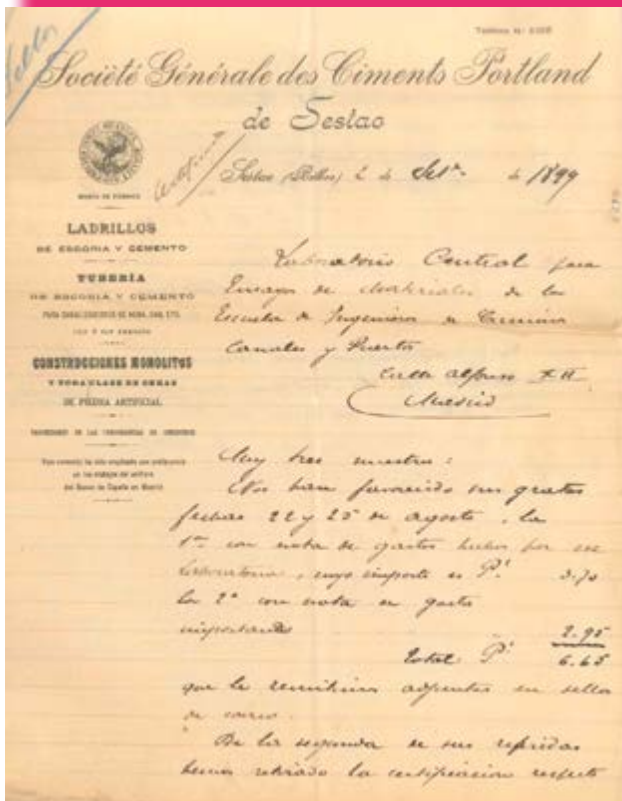 Sellos
Société Générale des Ciments Portland
de Sestao
Sestao (Bilbao) 2 de Set.e de 1899
MARCA DE FÁBRICA
LADRILLOS
DE ESCORIA Y CEMENTO
TUBERÍA
DE ESCORIA Y CEMENTO
CONSTRUCCIONES MONOLITOS
Y TODA CLASE DE OBRAS
DE PIEDRA ARTIFICIAL
del Banco de España en Madrid
Laboratorio Central para
Ensayos de Materiales de la
Escuela de Ingenieros de Caminos
Canales y Puertos
Calle Alfonso XII
Madrid
Muy Sres nuestros:
Nos han favorecido sus gratas
fechas 22 y 25 de agosto, la
1ª con nota de gastos hechos por ese
Laboratorio, cuyo importe es P. 3.70
la 2ª con nota de gastos
importando 2.95
Total P. 6.65
que le remitimos adjuntos en sellos
de correo.
De la segunda de sus referidas
hemos retirado la certificación respecto